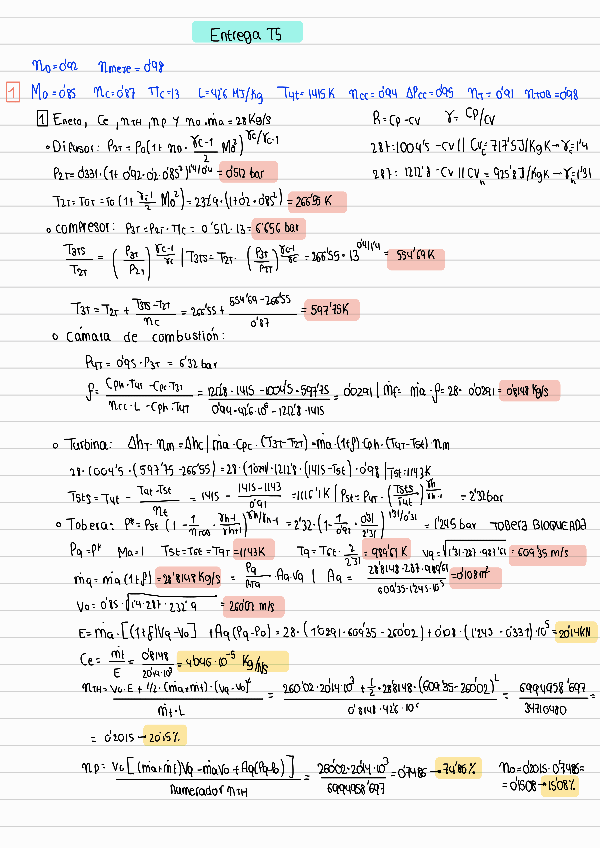 Entrega T5
η_D=0'92 η_mere=0'98
1 M_0=0'85 η_C=0'87 π_C=13 L=42'6 MJ/Kg T_4t=1415K η_CC=0'94 ΔP_CC=0'95 η_T=0'91 η_TOB=0'98
1 E_neto, C_e, η_TH, η_P y η_0. ṁa=28Kg/s R=Cp-Cv γ=Cp/Cv
o Difusor: P_2T=P_0(1+η_D·(γ_C-1)/2 M_0²)^(γ_C/γ_C-1) 287=1004'5-Cv || Cv_C=717'5J/KgK→γ_C=1'4
P_2T=0'331·(1+0'92·0'2·0'85²)^(1'4/0'4)=0'512 bar 287=1212'8-Cv || Cv_h=925'8J/KgK→γ_h=1'31
T_2T=T_0T=T_0(1+(γ_C-1)/2 M_0²)=232'9·(1+0'2·0'85²)=266'55 K
o Compresor: P_3T=P_2T·π_C=0'512·13=6'656 bar
T_3TS/T_2T=(P_3T/P_2T)^((γ_C-1)/γ_C) | T_3TS=T_2T·(P_3T/P_2T)^((γ_C-1)/γ_C)=266'55·13^(0'4/1'4)=554'69K
T_3T=T_2T+(T_3TS-T_2T)/η_C=266'55+(554'69-266'55)/0'87=597'75K
o Cámara de combustión:
P_4T=0'95·P_3T=6'32 bar
f=(Cph·T_4T-Cpc·T_3T)/(η_CC·L-Cph·T_4T)=(1212'8·1415-1004'5·597'75)/(0'94·42'6·10⁶-1212'8·1415)=0'0291 | ṁf=ṁa·f=28·0'0291=0'8148Kg/s
o Turbina: Δh_T·η_m=Δh_C | ṁa·Cpc·(T_3T-T_2T)=ṁa·(1+f)·Cph·(T_4T-T_5t)·η_m
28·1004'5·(597'75-266'55)=28·(1'0291)·1212'8·(1415-T_5t)·0'98 | T_5t=1143K
T_5ts=T_4t-(T_4t-T_5t)/η_t=1415-(1415-1143)/0'91=1116'1K | P_5t=P_4T·(T_5ts/T_4t)^(γ_h/γ_h-1)=2'32bar
o Tobera: P*=P_5t(1-1/η_TOB·(γ_h-1)/(γ_h+1))^(γ_h/γ_h-1)=2'32·(1-1/0'98·0'31/2'31)^(1'31/0'31)=1'245 bar TOBERA BLOQUEADA
P_9=P* M_9=1 T_5t=T_8t=T_9T=1143K T_9=T_9t·2/2'31=989'61 K V_9=√(1'31·287·989'61)=609'35 m/s
ṁ_9=ṁa(1+f)=28'8148Kg/s=P_9/(R·T_9)·A_9·V_9 | A_9=(28'8148·287·989'61)/(609'35·1'245·10⁵)=0'108m²
V_0=0'85·√(1'4·287·232'9)=260'02 m/s
E=ṁa·[(1+f)V_9-V_0]+A_9(P_9-P_0)=28·(1'0291·609'35-260'02)+0'108·(1'245-0'331)·10⁵=20'14KN
C_e=ṁf/E=0'8148/(20'14·10³)=4'046·10⁻⁵ Kg/Ns
η_TH=(V_0·E+1/2·(ṁa+ṁf)·(V_9-V_0)²)/(ṁf·L)=(260'02·20'14·10³+1/2·28'8148·(609'35-260'02)²)/(0'8148·42'6·10⁶)=6994958'697/34710480=
=0'2015→20'15%
η_P=V_0[(ṁa+ṁf)V_9-ṁaV_0+A_9(P_9-P_0)]/Numerador η_TH=(260'02·20'14·10³)/6994958'697=0'7486→74'86% η_0=0'2015·0'7486=
=0'1508→15'08%